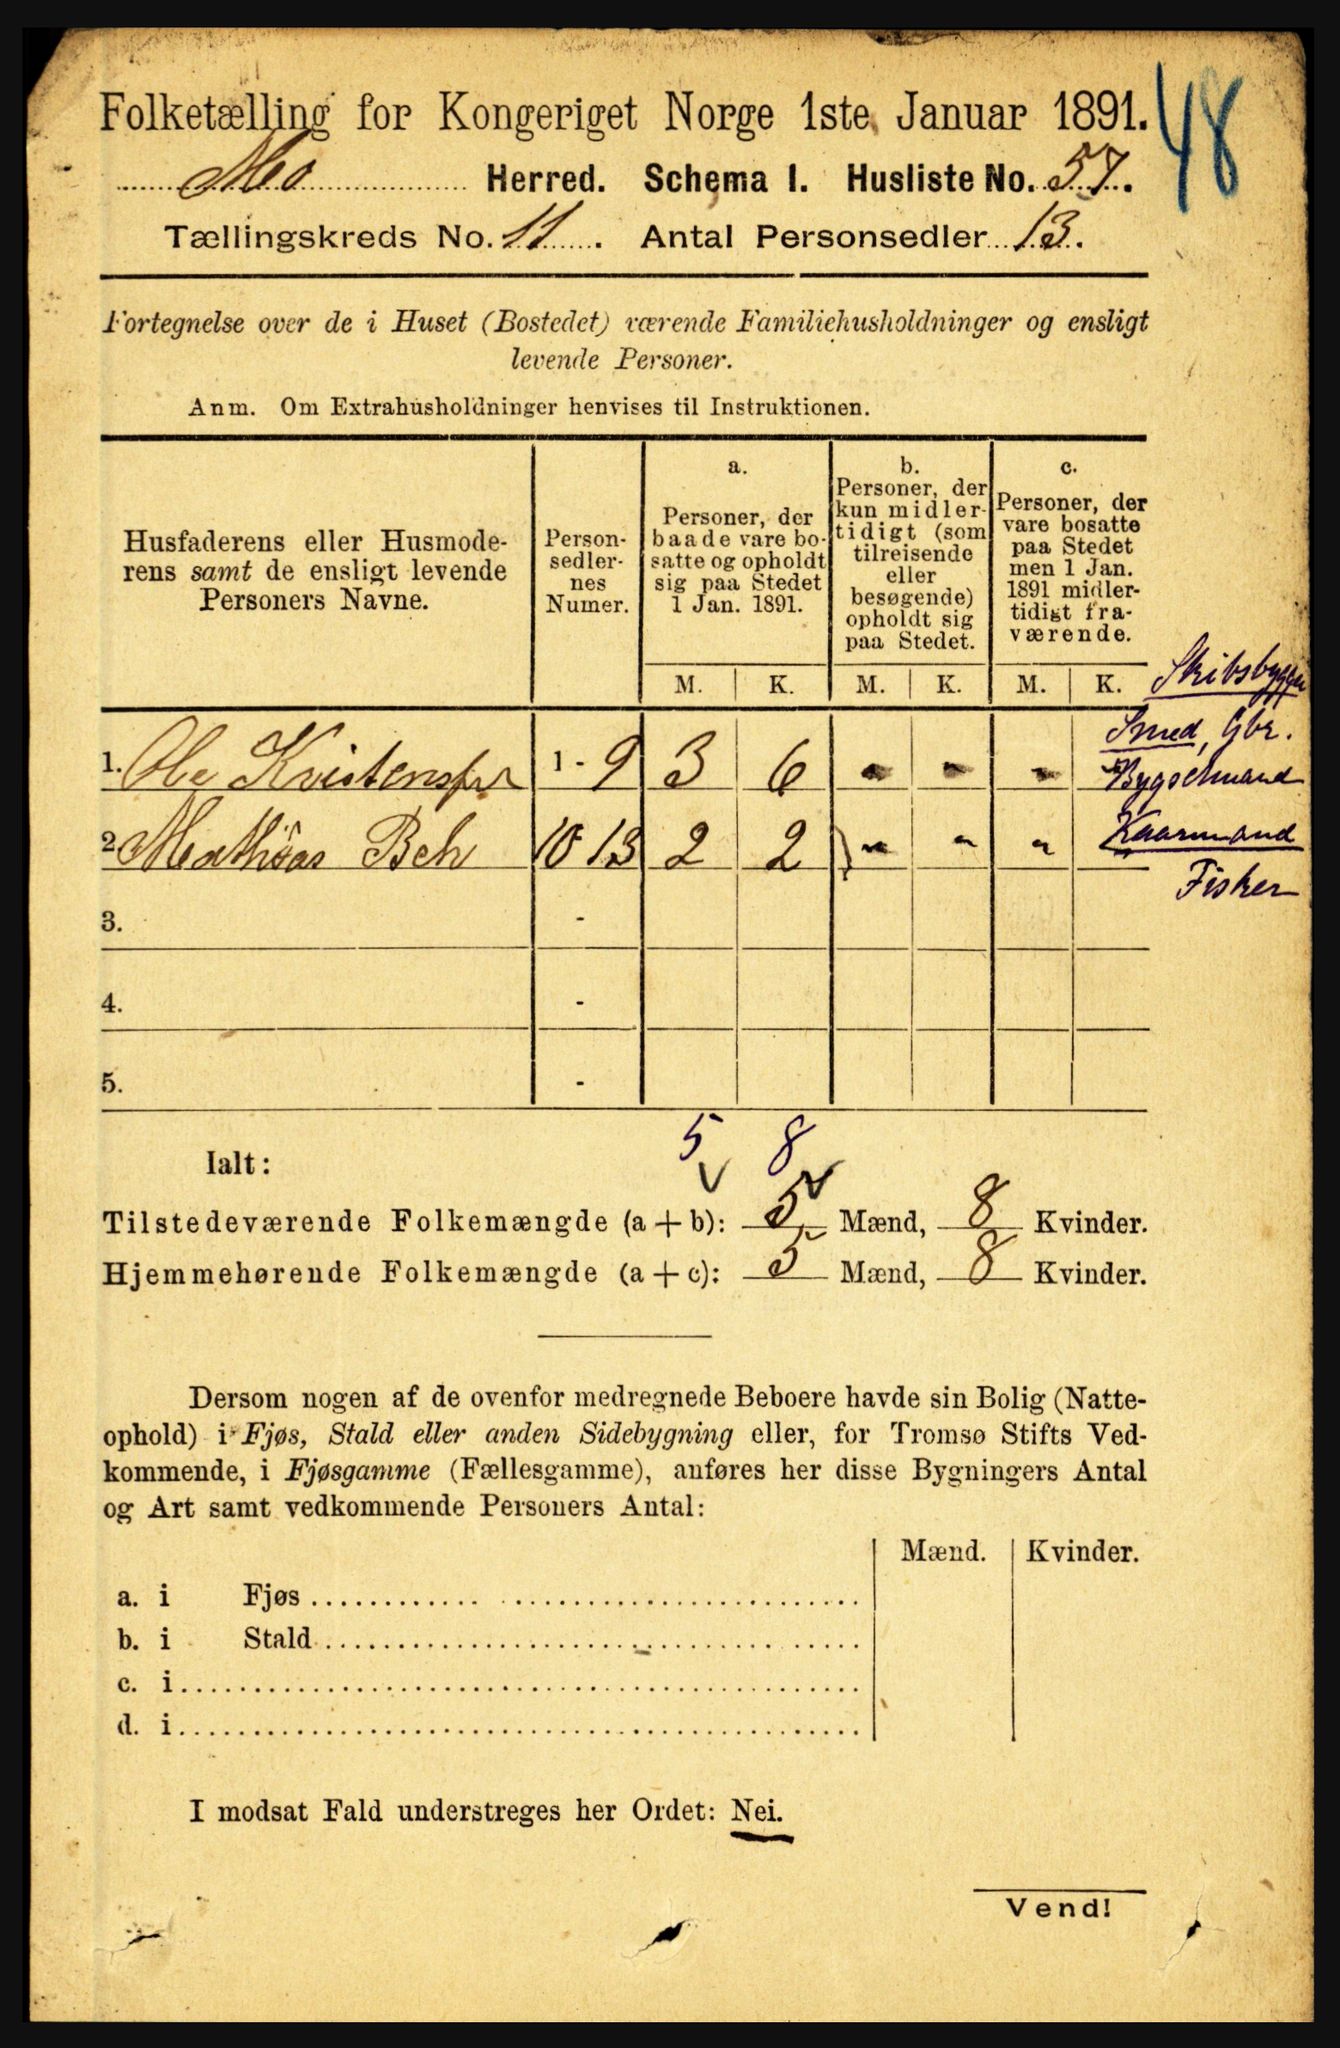 Folketælling for Kongeriget Norge 1ste Januar 1891.
48
Mo Herred. Schema I. Husliste No. 57.
Tællingskreds No. 11. Antal Personsedler 13.
Fortegnelse over de i Huset (Bostedet) værende Familiehusholdninger og ensligt
levende Personer.
Anm. Om Extrahusholdninger henvises til Instruktionen.
Husfaderens eller Husmode-
rens samt de ensligt levende
Personers Navne.
Person-
sedler-
nes
Numer.
a.
Personer, der
baade vare bo-
satte og opholdt
sig paa Stedet
1 Jan. 1891.
b.
Personer, der
kun midler-
tidigt (som
tilreisende
eller
besøgende)
opholdt sig
paa Stedet.
c.
Personer, der
vare bosatte
paa Stedet
men 1 Jan.
1891 midler-
tidigt fra-
værende.
M. K. M. K. M. K.
Skibsbygger
Smed, Gbr.
1. Ole 1 - 9 3 6 - - - Bygselmand
2. Mathias 10 13 2 2 - - - Kaarmand
Fisker
3. -
4. -
5. -
5 8
Ialt:
Tilstedeværende Folkemængde (a + b): 5 Mænd, 8 Kvinder.
Hjemmehørende Folkemængde (a + c): 5 Mænd, 8 Kvinder.
Dersom nogen af de ovenfor medregnede Beboere havde sin Bolig (Natte-
ophold) i Fjøs, Stald eller anden Sidebygning eller, for Tromsø Stifts Ved-
kommende, i Fjøsgamme (Fællesgamme), anføres her disse Bygningers Antal
og Art samt vedkommende Personers Antal:
Mænd. Kvinder.
a. i Fjøs
b. i Stald
c. i
d. i
I modsat Fald understreges her Ordet: Nei.
Vend!